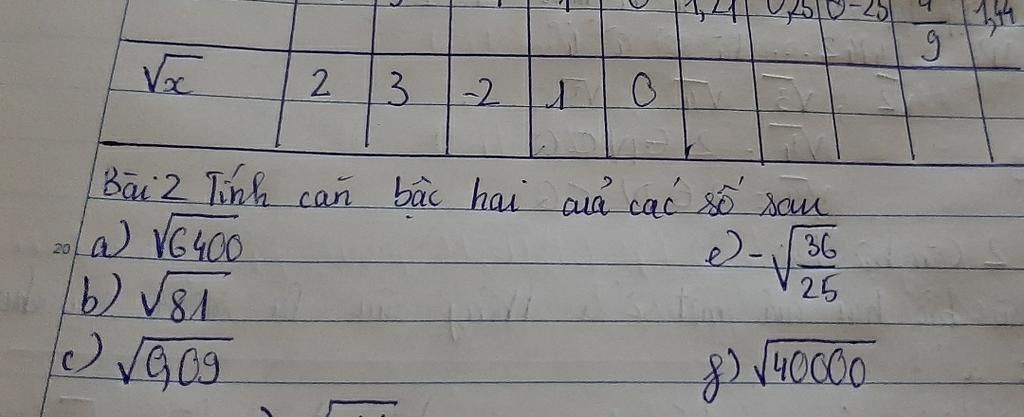 1,21 0,25 0-25 4/9 1,44
√x 2 3 -2 1 0
Bài 2 Tính căn bậc hai của các số sau
20 a) √6400 e) -√36/25
b) √81
c) √0,09 g) √40000